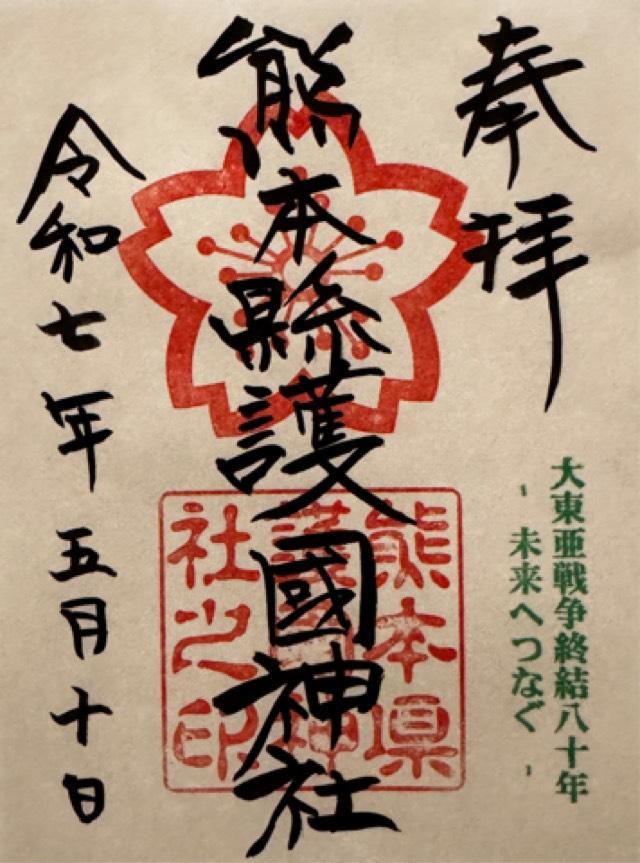 奉拝
大東亜戦争終結八十年
- 未来へつなぐ -
熊本縣護國神社
熊本県
護国神
社之印
令和七年五月十日